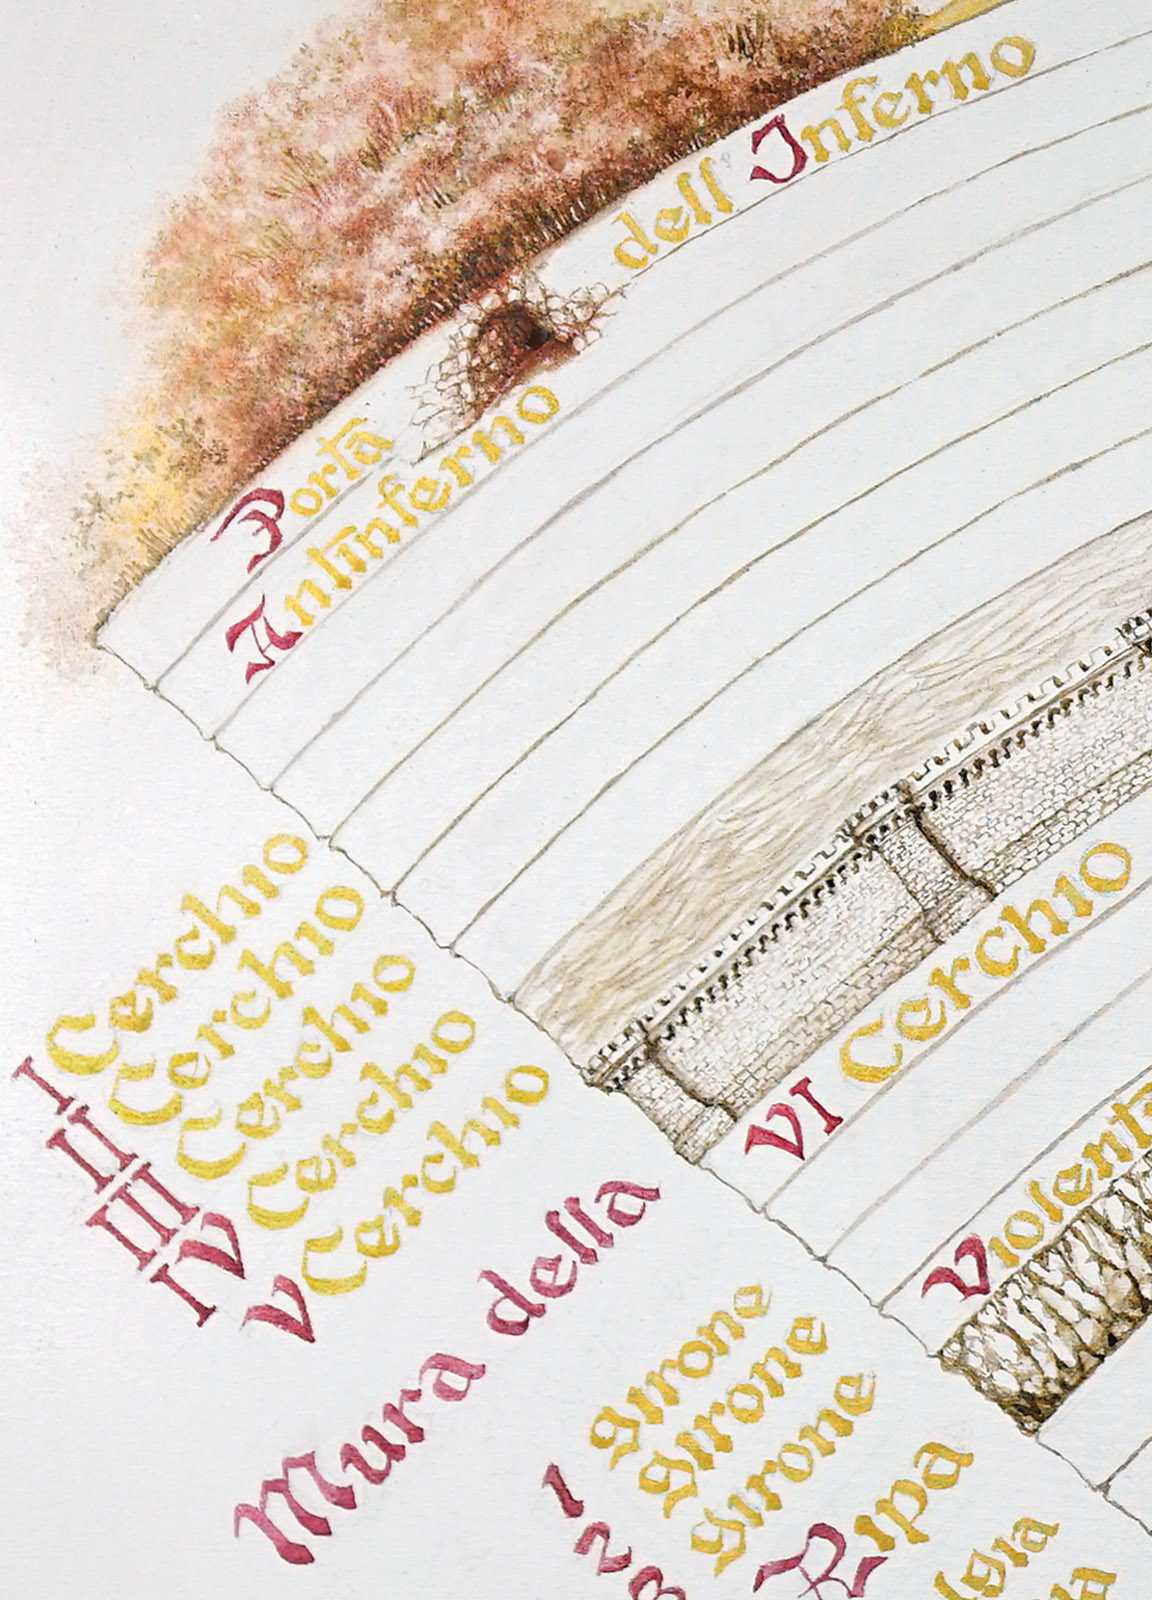 Porta dell'Inferno
Antinferno
I Cerchio
II Cerchio
III Cerchio
IV Cerchio
V Cerchio
Mura della
VI Cerchio
Violenti
1 girone
2 girone
3 girone
Ripa